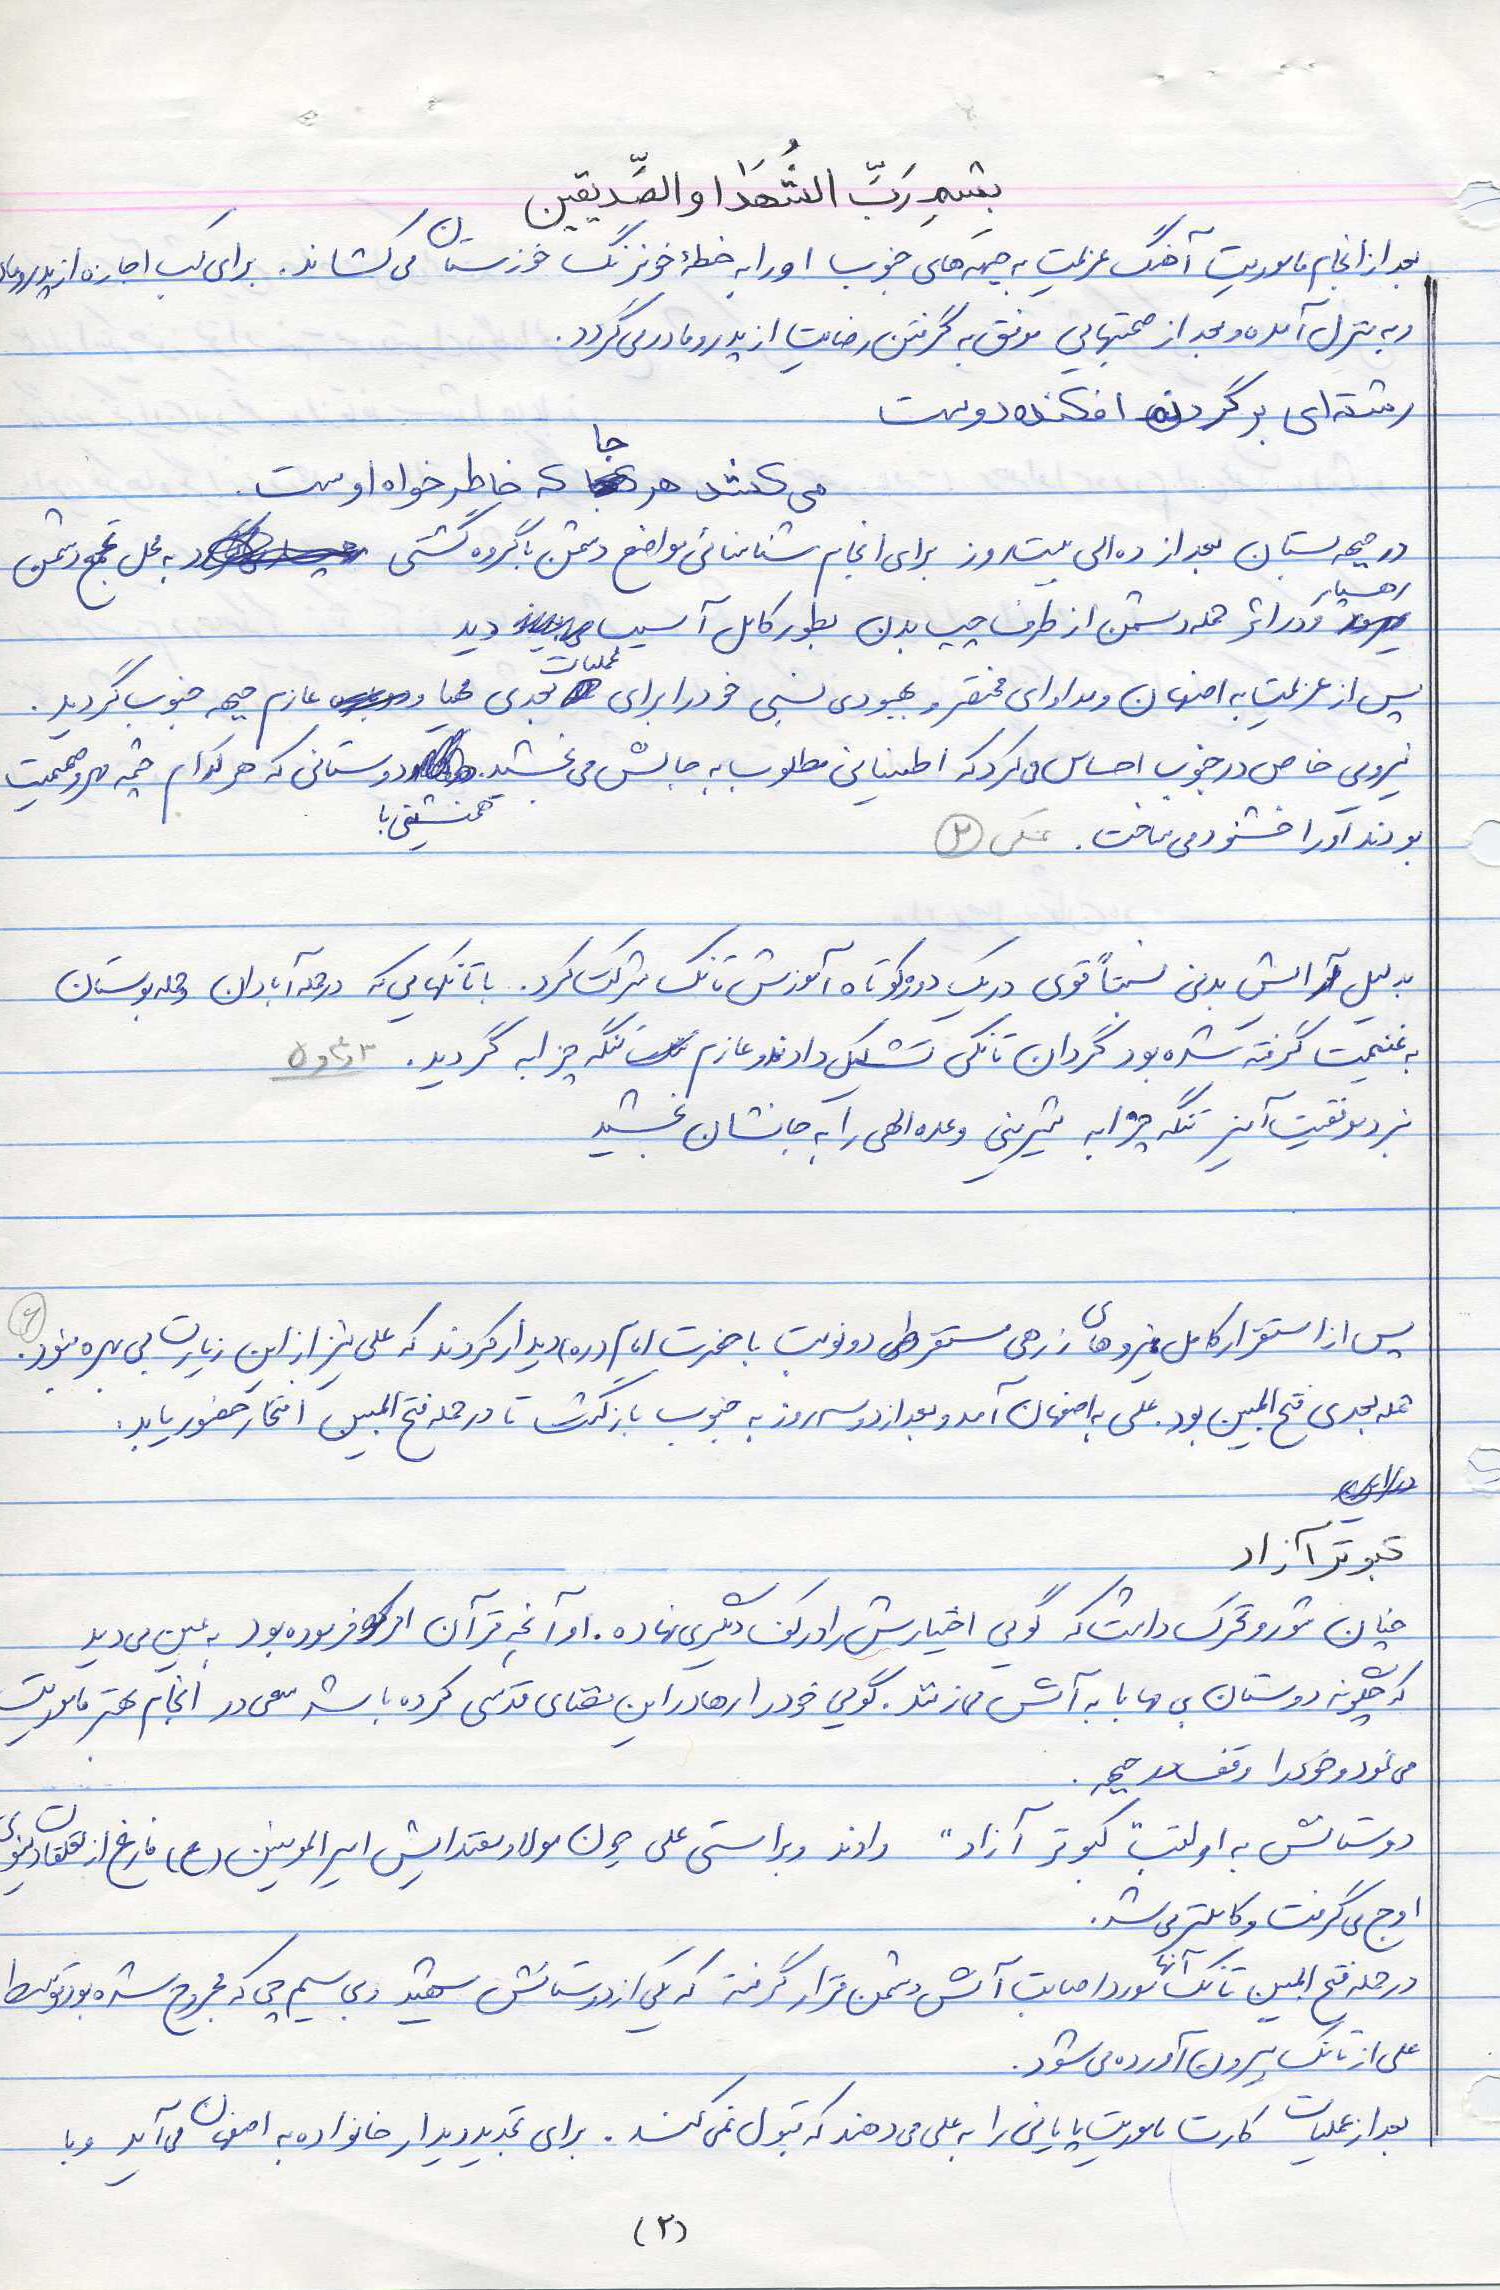 بِسْمِ رَبِّ الشُّهَدَا و الصِّدیقین
بعد از انجام ماموریت آهنگ عزیمت به جبهه‌های جنوب او را به خطهٔ خونرنگ خوزستان می‌کشاند. برای کسب اجازه از پدر و مادر
و به منزل آمده و بعد از صحبتهایی موفق به گرفتن رضایت از پدر و مادر می‌گردد.
رشته‌ای بر گردنم افکنده دوست
می‌کشد هر جا که خاطر خواه اوست.
در جبهه بستان بعد از ده الی بیست روز برای انجام شناسائی مواضع دشمن با گروه گشتی به محل تجمع دشمن
رهسپار و در اثر حمله دشمن از طرف چپ بدن بطور کامل آسیب دید
پس از عزیمت به اصفهان و مداوای مختصر و بهبودی نسبی خود را برای عملیات بعدی مهیا و عازم جبهه جنوب گردید.
نیرویی خاص در جنوب احساس می‌کرد که اطمینانی مطلوب به جانش می‌بخشید. همنشینی با دوستانی که هر کدام چشمه مهر و صمیمیت
بودند او را خشنود می‌ساخت. عکس ۲
بدلیل بدنی نسبتاً قوی در یک دوره کوتاه آموزش تانک شرکت کرد. با تانکهایی که در حمله آبادان و حمله بوستان
به غنیمت گرفته شده بود گردان تانکی تشکیل دادند و عازم تنگه چزابه گردید. ۳ و ۴ و ۵
نبرد موفقیت آمیز تنگه چزابه شیرینی وعده الهی را به جانشان بخشید
پس از استقرار کامل نیروهای زرهی مستقر طی دو نوبت با حضرت امام (ره) دیدار کردند که علی نیز از این زیارت بی بهره نبود. ۶
حمله بعدی فتح المبین بود. علی به اصفهان آمد و بعد از دو سه روز به جنوب بازگشت تا در حمله فتح المبین افتخار حضور یابد.
کبوتر آزاد
چنان شور و تحرک داشت که گویی اختیارش را در کف دیگری نهاده. او آنچه قرآن فرموده بود به عین می‌دید
که چگونه دوستان بی مهابا به آتش می‌زنند. گویی خود را رها در این فضای قدسی کرده باشد سعی در انجام بهتر ماموریت
می‌نمود و خود را وقف جبهه.
دوستانش به او لقب "کبوتر آزاد" دادند و براستی علی چون مولا و مقتدایش امیر المومنین (ع) فارغ از تعلقات دنیوی
اوج می‌گرفت و کاملتر می‌شد.
در حمله فتح المبین تانک آنها مورد اصابت آتش دشمن قرار گرفته که یکی از دوستانش شهید و بی سیم چی که مجروح شده بود توسط
علی از تانک بیرون آورده می‌شود.
بعد از عملیات کارت ماموریت پایانی را به علی می‌دهند که قبول نمی‌کند. برای تجدید دیدار خانواده به اصفهان می‌آید و با
(۲)